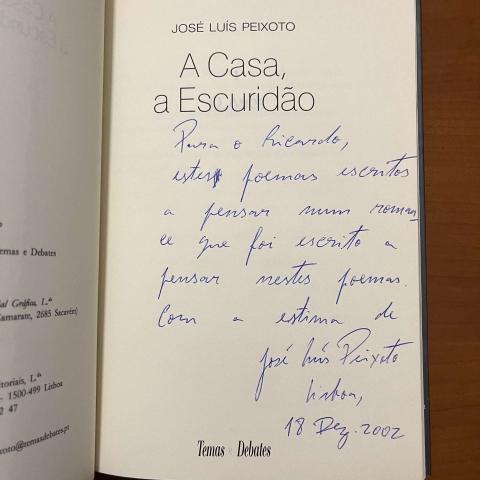 JOSÉ LUÍS PEIXOTO
A Casa,
a Escuridão
Para o Ricardo,
estes poemas escritos
a pensar num roman
ce que foi escrito a
pensar nestes poemas.
Com a estima de
José Luís Peixoto
Lisboa,
18 Dez. 2002
Temas e Debates
emas e Debates
ial Gráfica, L.da
Camarate, 2685 Sacavém)
itoriais, L.da
- 1500-499 Lisboa
2 47
oto@temasdebates.pt